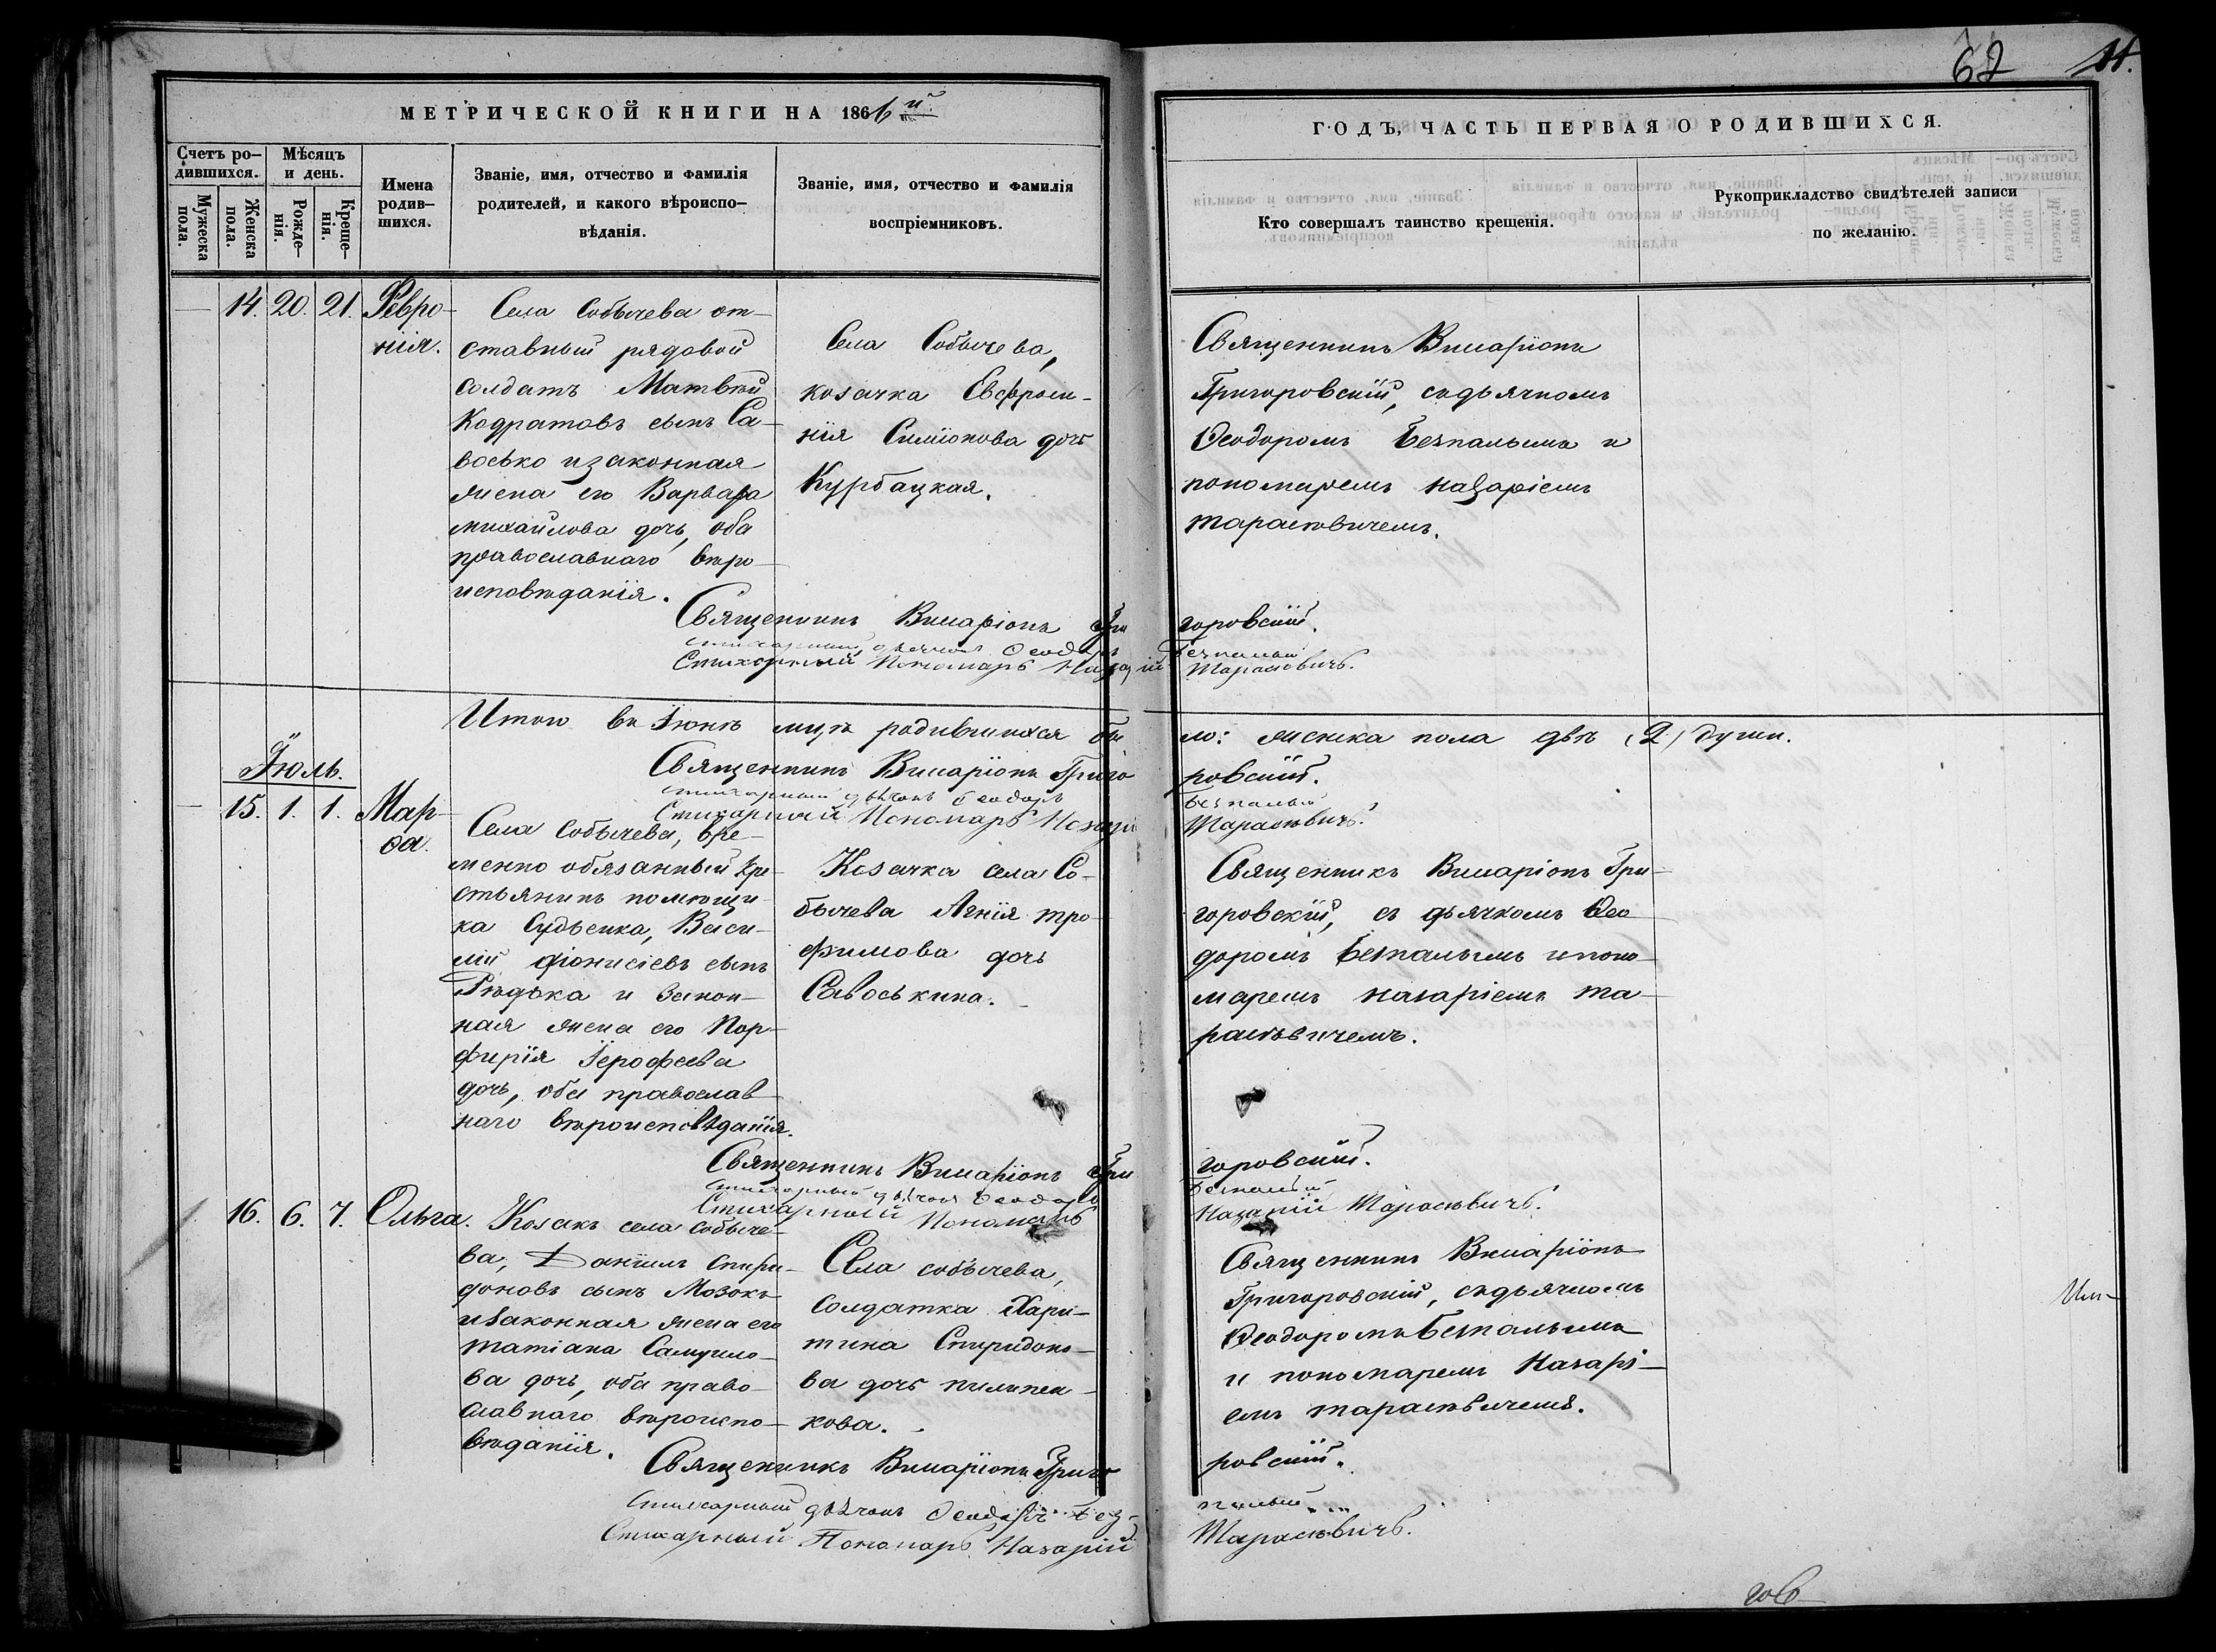 62 11.
МЕТРИЧЕСКОЙ КНИГИ НА 1866 й
ГОДЪ, ЧАСТЬ ПЕРВАЯ О РОДИВШИХСЯ.
Счетъ ро-
дившихся.
Мужеска
пола.
Женска
пола.
Мѣсяцъ
и день.
Рожде-
нія.
Креще-
нія.
Имена
родив-
шихся.
Званіе, имя, отчество и фамилія
родителей, и какого вѣроиспо-
вѣданія.
Званіе, имя, отчество и фамилія
воспріемниковъ.
Кто совершалъ таинство крещенія.
Рукоприкладство свидѣтелей записи
по желанію.
14. 20. 21. Февро-
нія.
Села Собычева от-
ставный рядовой
солдатъ Матвѣй
Кодратовъ сынъ Са-
восько изаконная
жена его Варвара
михаилова дочь, оба
православнаго вѣро-
исповѣданія.
Села Собычева,
козачка Евфроси-
нія Симіонова дочь
Курбацкая.
Священникъ Виларіонъ
Григоровскій, съдьячкомъ
Ѳеодоромъ Безпалымъ и
пономаремъ назаріемъ
тарасевичемъ.
Священникъ Виларіонъ Григоровскій.
Стихарный дьячокъ Ѳеодоръ Безпалый
Стихарный Пономарь Назарій Тарасевичъ.
Итого въ Іюнѣ мцѣ родившихся было: женска пола двѣ (2) души.
Священникъ Виларіонъ Григоровскій.
Стихарный дьячокъ Ѳеодоръ Безпалый
Стихарный Пономарь Назарій Тарасевичъ.
Іюль.
15. 1. 1. Мар-
ѳа.
Села Собычева, вре-
менно обязанный кре-
стьянинъ помѣщи-
ка Судьенка, Васи-
лій діонисіевъ сынъ
Рѣдька и закон-
ная жена его Пор-
фирія Іерофеева
дочь, оба православ-
наго вѣроисповѣданія.
Козачка села Со-
бычева Агнія тро-
фимова дочь
Савоськина.
Священникъ Виларіонъ Гри-
горовскій, съ дьячкомъ Ѳео
доромъ Безпалымъ и поно-
маремъ назаріемъ та-
расевичемъ.
Священникъ Виларіонъ Григоровскій.
Стихарный дьячокъ Ѳеодоръ Безпалый
Стихарный Пономарь Назарій Тарасевичъ.
16. 6. 7. Ольга.
Козакъ села Собыче-
ва, Даніилъ Спири-
доновъ сынъ Мозокъ
изаконная жена его
татіана Самуило-
ва дочь, оба право-
славнаго вѣроиспо-
вѣданія.
Села собычева,
солдатка Хари-
тина Спиридоно-
ва дочь пилипен-
кова.
Священникъ Виларіонъ
Григоровскій, съдьячкомъ
Ѳеодоромъ Безпалымъ
и пономаремъ Назарі-
емъ тарасевичемъ.
Священникъ Виларіонъ Григоровскій.
Стихарный дьячокъ Ѳеодоръ Безпалый
Стихарный Пономарь Назарій Тарасевичъ.